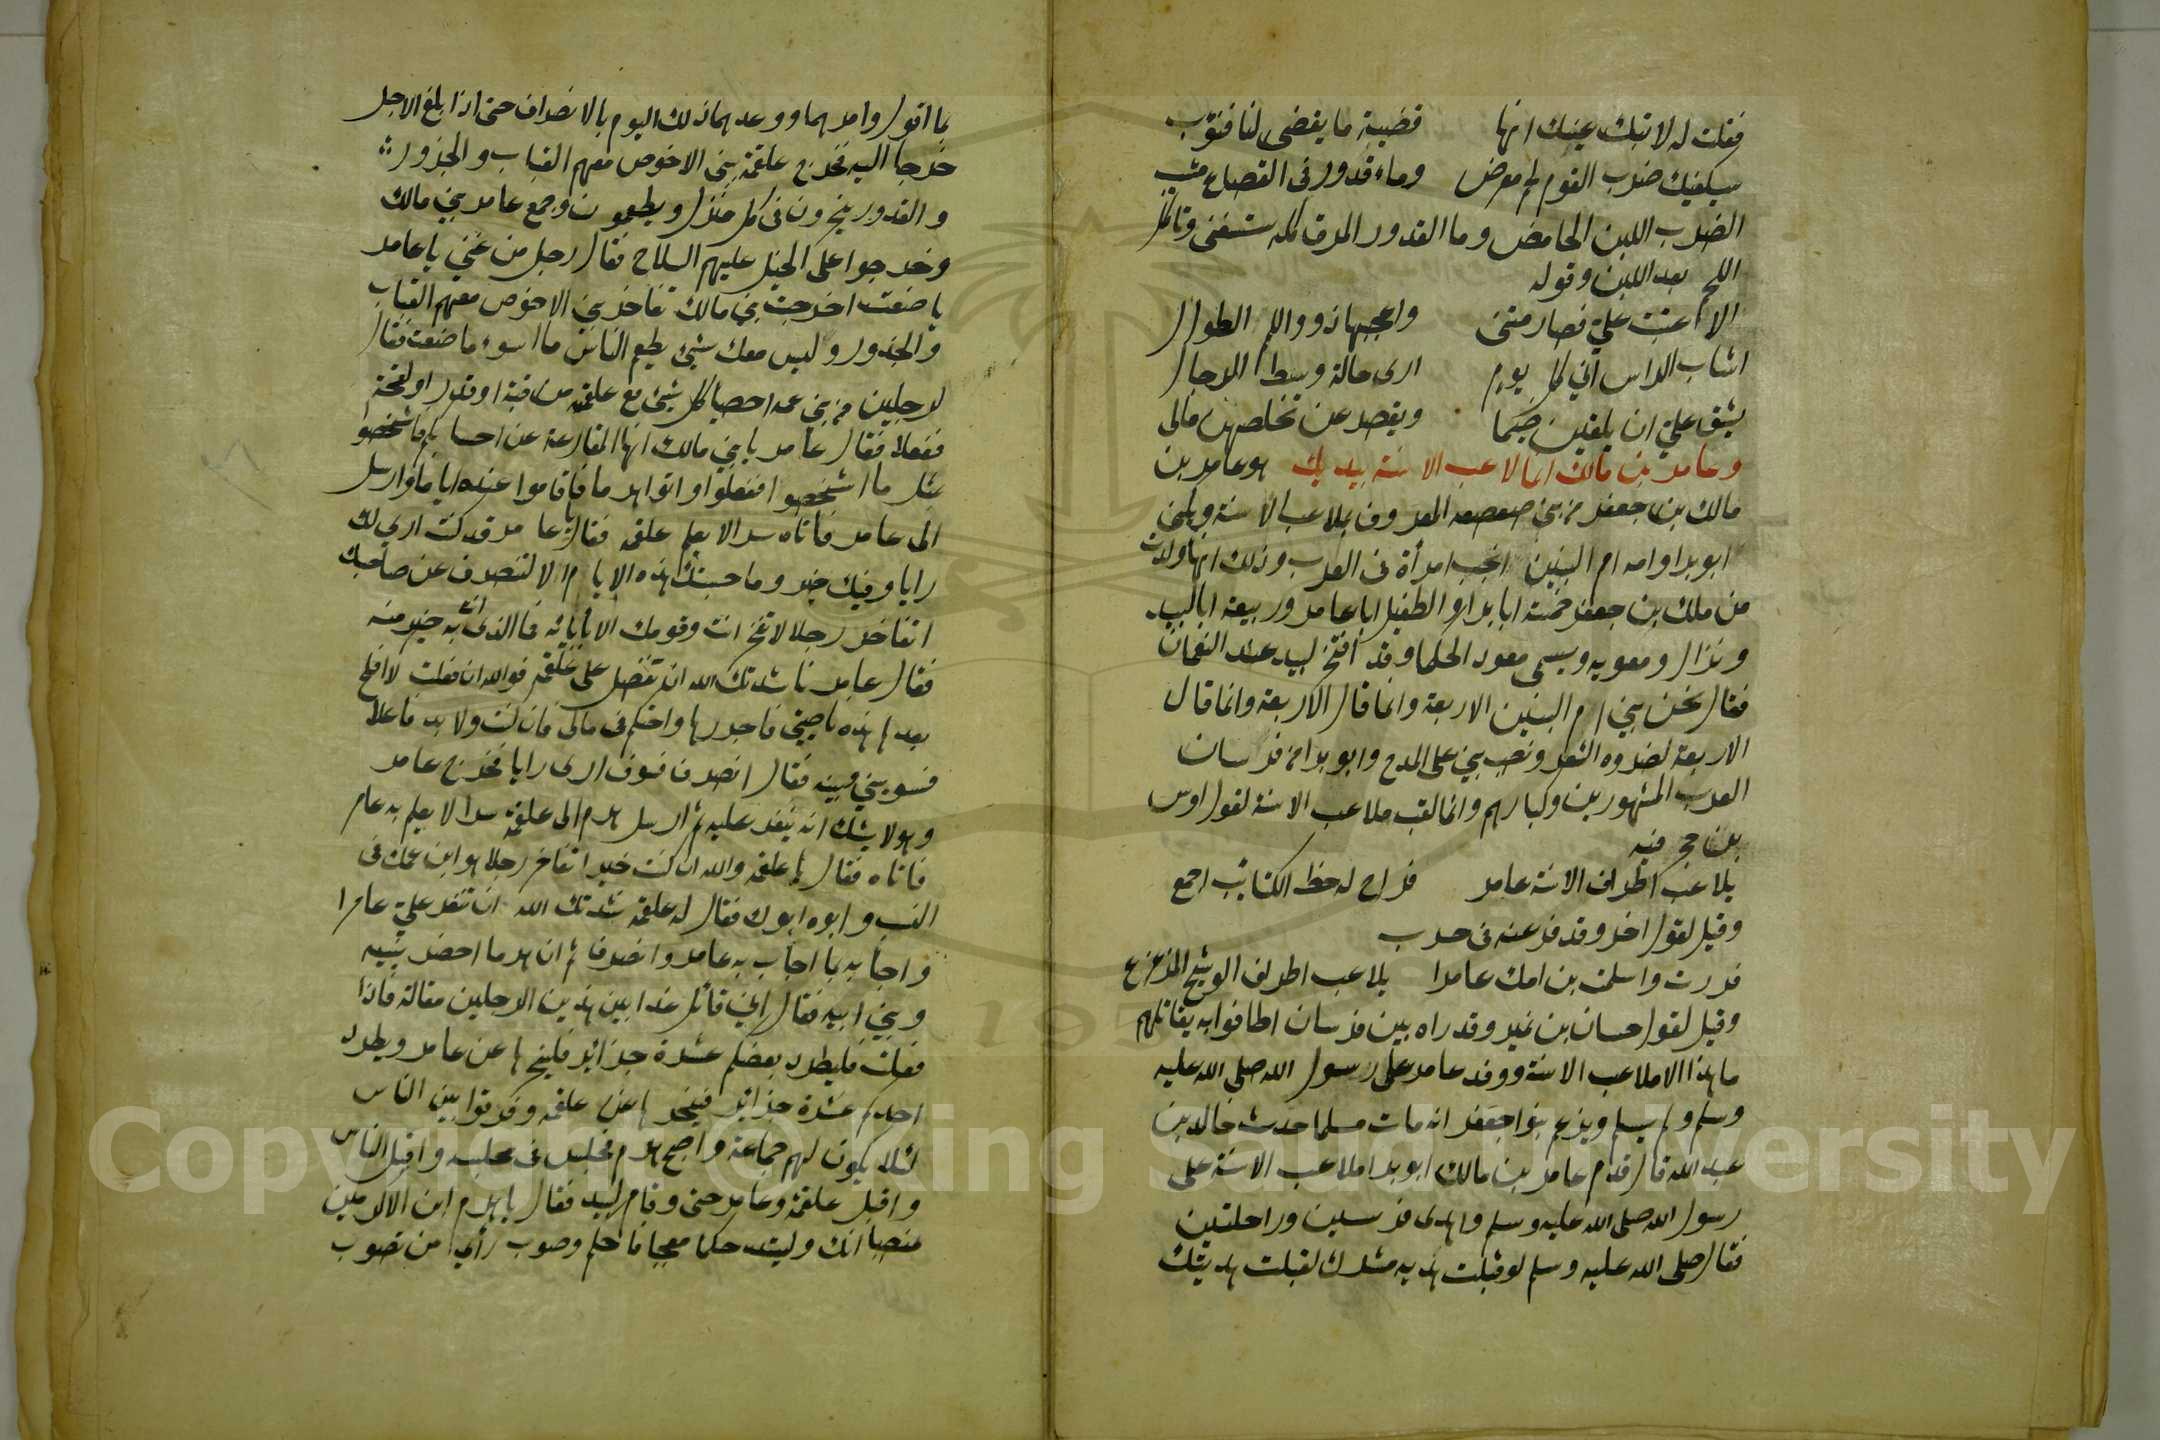 فقلت له لا تبك عينك انها قضية ما يقضى لنا فنؤب
سيكفيك ضرب القوم لحم معرض وماء قدور فى القصاع مشيب
الضرب اللبن الحامض وما القدور المرق كله ستغنى وتاكل
اللحم بعد اللبن وقوله
الا عتبت علي فصارمتنى واعجبها ذوو اللمم الطوال
اشاب الراس انى كل يوم ارى خالة وسط الرحال
يشق علي ان يلقين ضيما ويقصر عن تخلصهن مالى
وعامر بن مالك انما لاعب الاسنة بيديك هو عامر بن
مالك بن جعفر من بنى صعصعه المعروف بملاعب الاسنة ويكنى
ابو برا وامه ام البنين انجب امرأة فى العرب وذلك انها ولدت
من ملك بن جعفر خمسة ابا برا والطفيل ابا عامر وربيعة ابا لبيد
ونزال ومعويه ويسمى معود الحكما وقد افتخر لبيد عند النعمان
فقال نحن بني ام البنين الاربعة وانما قال الاربعة وانما قال
الاربعة لضروه الشعر ونصب بني على المدح وابو برا من فرسان
العرب المشهورين وكبارهم وانما لقب ملاعب الاسنة لقول اوس
بن حجر فيه
يلاعب اطراف الاسنة عامر فراح له حظ الكتائب اجمع
وقيل لقول اخر وقد فر عنه فى حرب
فررت واسلمت بن امك عامرا يلاعب اطراف الوشيج المزعزع
وقيل لقول حسان بن نمير وقد راه بين فرسان اطافوا به يقاتلهم
ما هذا الا ملاعب الاسنة ووفد عامر على رسول الله صلى الله عليه
وسلم ولم يسلم ويزعم بنوا جعفر انه مات مسلما حدث خالد بن
عبد الله قال قدم عامر بن مالك ابو برا ملاعب الاسنة على
رسول الله صلى الله عليه وسلم واهدى فرسين وراحلتين
فقال صلى الله عليه وسلم لو قبلت هديه مشرك لقبلت هديتك
بما اقول وامرهما ووعدهما ذلك اليوم بالانصراف حتى اذا بلغ الاجل
خرجا اليه فخرج علقمة بنى الاخوص معهم القباب والجزور
والقدور ينحرون فى كل منزل ويطعمون وجمع عامر بني مالك
وخرجوا على الخيل عليهم السلاح فقال رجل من غني يا عامر
ما صنعت اخرجت بني مالك تفاخر بني الاخوص معهم القباب
والجزور وليس معك شئ يطعم الناس ما اسوء ما صنعت فقال
لرجلين من بني عمه احصيا كل شئ مع علقمه من قبة او قدر او لقحة
ففعلا فقال عامر يا بني مالك انها المقارعة عن احسابكم فاشخصوا
بمثل ما اشخصوا ففعلوا واتوا هرما فاقاموا عنده اياما وارسل
الى عامر فاتاه سرا لا يعلم علقمه فقال يا عامر قد كنت ارى لك
رايا وفيك خير وما حبستك هذه الايام الا لتنصرف عن صاحبك
اتفاخر رجلا لا تفخر انت وقومك الا بآبائه فما الذى انت به خير منه
فقال عامر ناشدتك الله ان تفضل على علقمه فوالله ان فعلت لا افلح
بعدها هذه ناصيتى فاجزرها واحتكم فى مالى فان كنت ولا بد فاعلا
فسو بيني وبينه فقال انصرف فسوف ارى رايا فخرج عامر
وهو لا يشك انه ينفر عليه ثم ارسل هرم الى علقمة سرا لا يعلم به عام
فاتاه فقال يا علقمه والله ان كنت خيرا تفاخر رجلا هو ابن عمك فى
النسب وابوه ابوك فقال له علقمه نشدتك الله ان تنفر علي عامرا
واجابه بما اجاب به عامر وانصرفا ثم ان هرما احضر بنيه
وبني ابيه فقال اني قائل غدا بين هذين الرجلين مقالة فاذا
فعلت فليطرد بعضكم عشرة جزائر فلينحرها عن عامر ويطرد
احدكم عشرة جزائر فينحرها عن علقمه وفرقوا بين الناس
لئلا يكون لهم جماعة واصبح هرم فجلس فى مجلسه واقبل الناس
واقبل علقمة وعامر حتى وقام لبيد فقال يا هرم ابن الاكرمين
منصبا انك وليت حكما معجبا فاحكم وصوب رأي من تصوب
Copyright © King Saud University